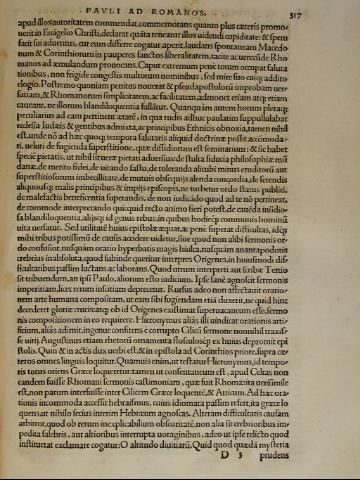 PAVLI AD ROMANOS. 317
apud illos autoritatem commendat, commemorans quanto plus cæteris promo-
uerit in Euāgelio Christi, declarat quâta teneatur illos uidendi cupiditate: & spem
facit sui aduentus, cur eum differre cogatur, aperit, laudans spontaneam Macedo
num & Corinthiorum in pauperes sanctos liberalitatem, tacite ac uerecūde Rho
manos ad æmulandum prouocans. Caput extremum pene totum occupat saluta
tionibus, non frigide congestis multorum nominibus, sed mire suo cuiq; addito
elogio. Postremo quoniam penitus nouerat & pseudapostolorū improbam uer-
sutiam, & Rhomanorum simplicitatem, ac facilitatem, admonet etiam atq; etiam
caueant, ne illorum blandiloquentia fallātur. Quanquàm autem horum pleraq;
peculiaria ad eam pertinent ætatē, in qua rudis adhuc paulatim suppullulabat
ecclesia Iudæis & gentibus admixta, ac principibus Ethnicis obnoxia, tamen nihil
est, unde nō ad hæc quoq; tempora salutaris aliquid doctrinæ possit accommoda-
ri. ueluti de fugienda superstitione, quæ dissidiorum est seminarium: & sic habet
speciē pietatis, ut nihil sit ueræ pietati aduersius: de stulta fiducia philosophiæ mū
danæ, de merito fidei, de uitando fastu, de toleranda aliorū minus eruditorū aut
superstitiosorum imbecillitate, de mutuis obsequijs alenda concordia, de ferendis
aliquousq; malis principibus & impijs episcopis, ne turbetur ordo status publici,
de malefactis beneficentia superandis, de non iudicādo quod ad te nō pertineat,
de commode interpretando quicquid recto animo fieri potest, de cauēda insidio
sa blandiloquentia, alijsq; id genus rebus, in quibus hodieq; communis hominū
uita uersatur. Sed utilitatē huius epistolæ æquat, ac penè superat difficultas, idq;
mihi tribus potissimū de causis accidere uidetur, siue quod non alibi sermonis or-
do confusior, nusquàm oratio hyperbatis magis hiulca, nusquàm anantapodotis
crebrius inabsoluta, quod subinde queritur interpres Origenes, in huiusmodi dif-
ficultatibus passim luctans ac laborans. Quod utrum interpreti aut scribæ Tertio
sit tribuendum, an ipsi Paulo, aliorum esto iudicium. Ipse sanè agnoscit sermonis
imperitiam, licet rerum inscitiam deprecetur. Rursus adeo non affectauit oratio-
nem arte humana compositam, ut eam sibi fugiendam etiā duxerit, ne quid hinc
decederet gloriæ crucis: atq; ob id Origenes existimat superuacaneum esse, sermo
nis compositionem in eo requirere. Hieronymus aliàs illi uindicat orationis arti-
ficium, aliàs adimit, ingenue confitens è corrupto Cilicū sermone nonnihil traxis-
se uitij. Augustinus etiam rhetorū ornamenta flosculosq; ex huius depromit epi
stolis. Quin & in actis dux uerbi est, & in epistola ad Corinthios priore, supra cæ
teros omnes linguis loquitur. Quamuis enim, ut testatur Hieronymus, id tempo-
ris totus oriens Græce loqueretur: tamen ut consentaneum est, apud Celtas non
eandem fuisse Rhomani sermonis castimoniam, quæ fuit Rhomæ: ita uerisimile
est, non parum interfuisse inter Cilicem Græce loquentē, & Atticum. Ad hæc ora-
tionis incommoda accessit hebraismus, cuius idiomata passim refert, ita græce lo
quens, ut nihilo secius interim Hebræum agnoscas. Alteram difficultatis causam
arbitror, quod ob rerum inexplicabilium obscuritatē, non alia sit crebrioribus im-
pedita salebris, aut altioribus interrupta uoraginibus, adeo ut ipse relicto quod
instituerat exclamare cogatur: O altitudo diuitiarū. Quid quod quædā mysteria
D 3 prudens